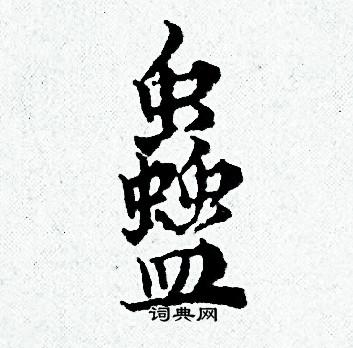 蠱
词典网